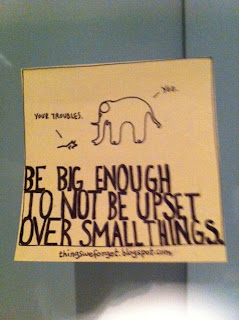 YOU.
YOUR TROUBLES.
BE BIG ENOUGH
TO NOT BE UPSET
OVER SMALL THINGS.
thingsweforget.blogspot.com